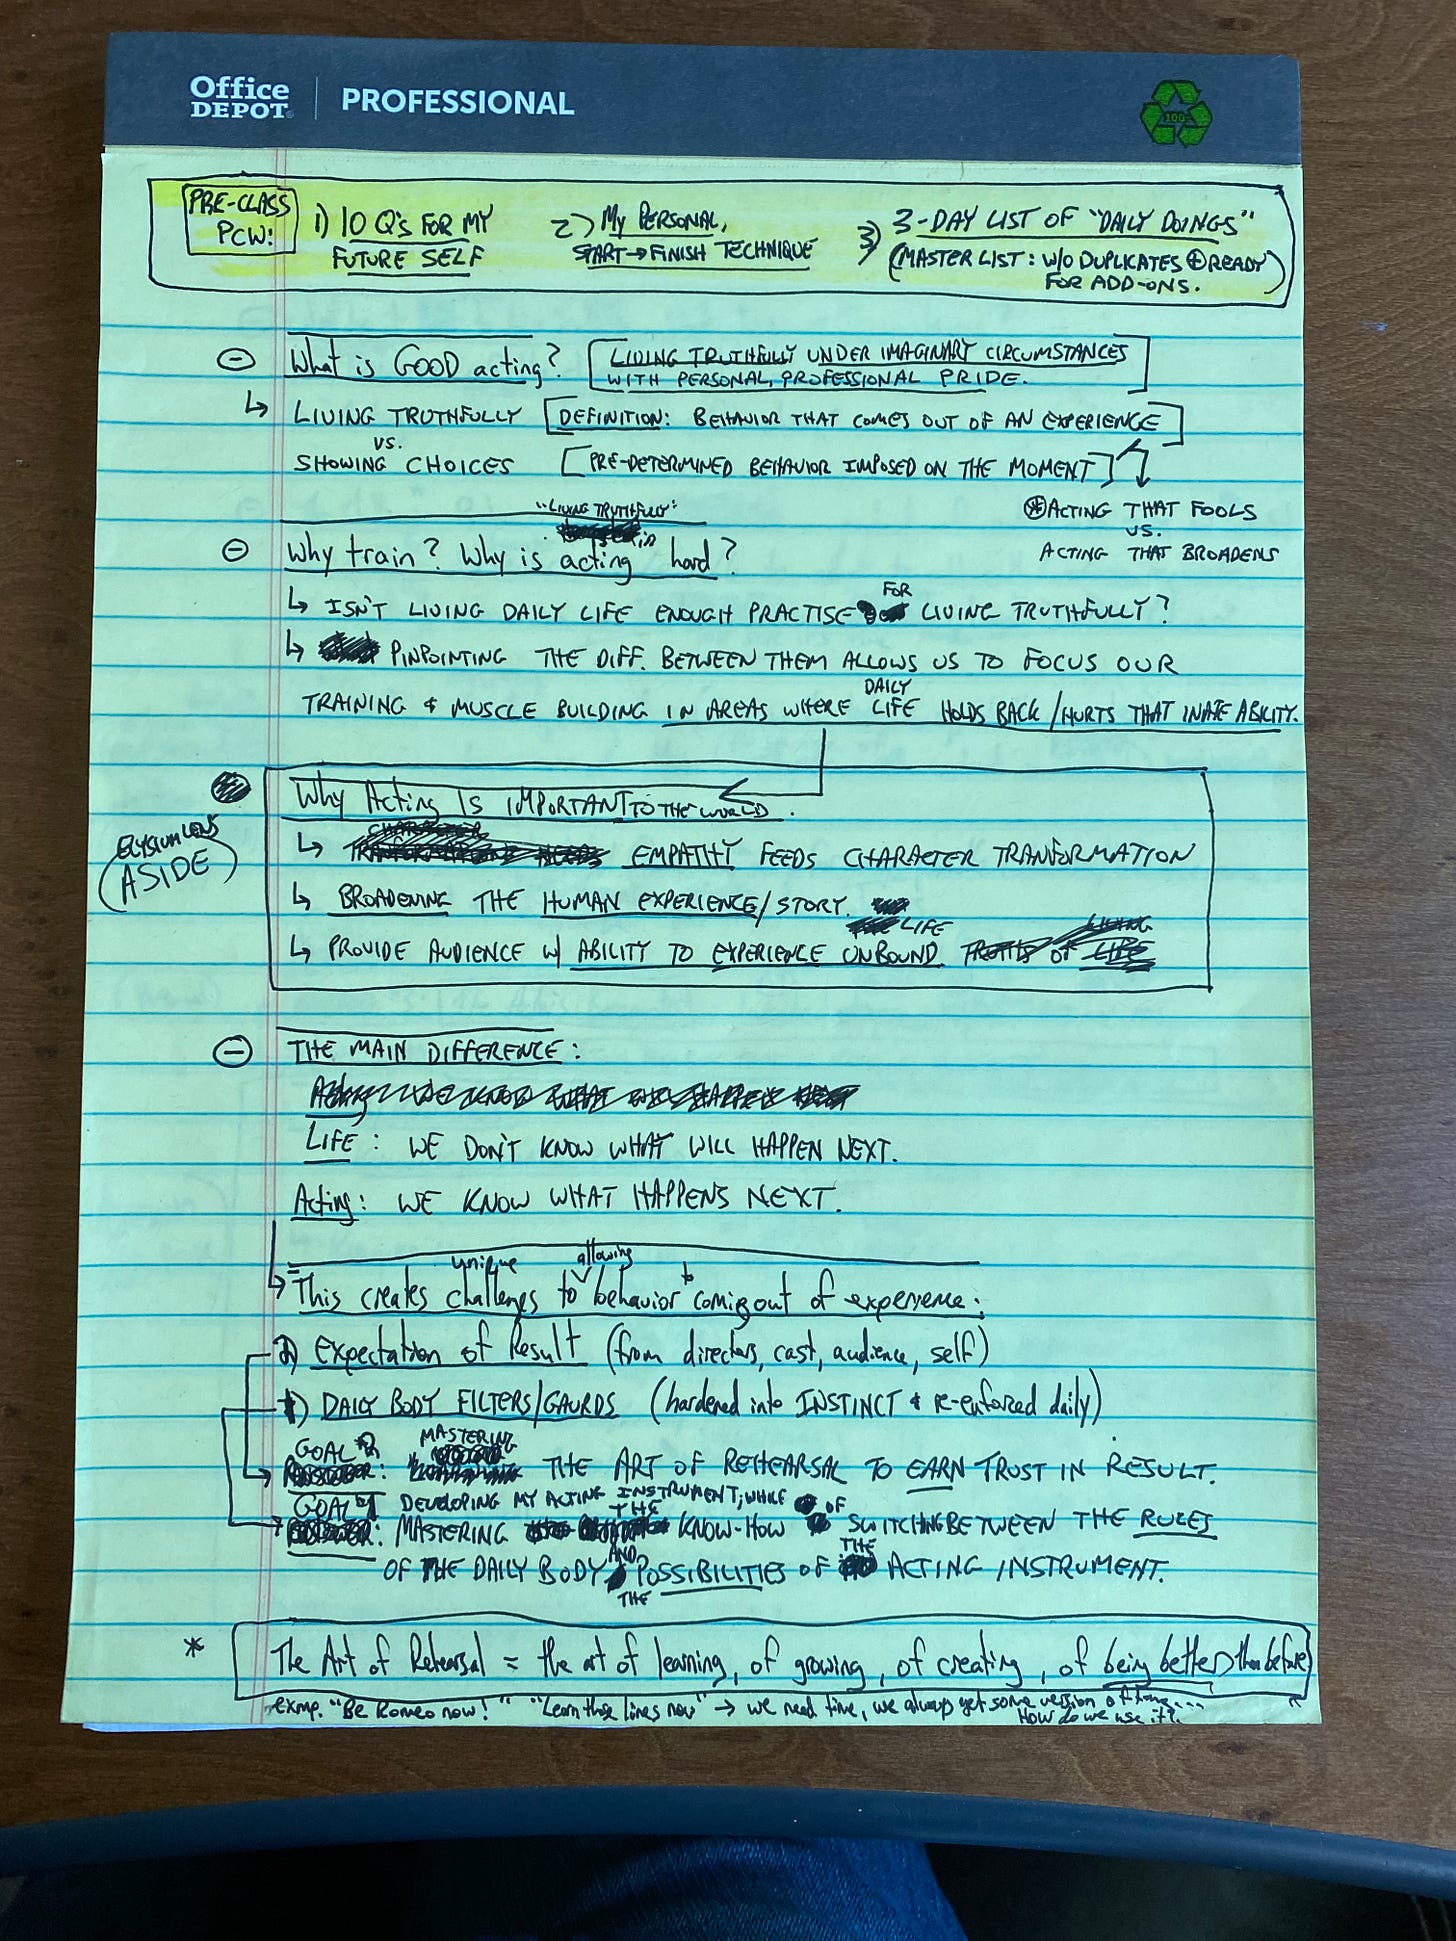 Office DEPOT PROFESSIONAL
100%
PRE-CLASS PCW:
1) 10 Q's FOR MY FUTURE SELF
2) My PERSONAL, START→FINISH TECHNIQUE
3) 3-DAY LIST OF "DAILY DOINGS"
(MASTER LIST: W/O DUPLICATES ⊕ READY FOR ADD-ONS.)
⊖ What is GOOD acting? [LIVING TRUTHFULLY UNDER IMAGINARY CIRCUMSTANCES
WITH PERSONAL, PROFESSIONAL PRIDE.]
↳ LIVING TRUTHFULLY [DEFINITION: BEHAVIOR THAT COMES OUT OF AN EXPERIENCE]
VS.
SHOWING CHOICES [PRE-DETERMINED BEHAVIOR IMPOSED ON THE MOMENT]
⊛ ACTING THAT FOOLS
VS.
ACTING THAT BROADENS
"LIVING TRUTHFULLY"
⊖ Why train? Why is in acting hard?
↳ ISN'T LIVING DAILY LIFE ENOUGH PRACTISE FOR LIVING TRUTHFULLY?
↳ PINPOINTING THE DIFF. BETWEEN THEM ALLOWS US TO FOCUS OUR
TRAINING & MUSCLE BUILDING IN AREAS WHERE DAILY LIFE HOLDS BACK/HURTS THAT INATE ABILITY.
ELYSIUM LENS
(ASIDE)
Why Acting Is IMPORTANT TO THE WORLD.
↳ EMPATHY FEEDS CHARACTER TRANFORMATION
↳ BROADENING THE HUMAN EXPERIENCE/STORY.
↳ PROVIDE AUDIENCE W/ ABILITY TO EXPERIENCE LIFE UNBOUND
⊖ THE MAIN DIFFERENCE:
LIFE: WE DON'T KNOW WHAT WILL HAPPEN NEXT.
Acting: WE KNOW WHAT HAPPENS NEXT.
↳ This creates unique challenges to allowing behavior to coming out of experience:
2) Expectation of Result (from directors, cast, audience, self)
1) DAILY BODY FILTERS/GAURDS (hardened into INSTINCT & re-enforced daily)
GOAL 2: MASTERING THE ART OF REHEARSAL TO EARN TRUST IN RESULT.
GOAL 1: DEVELOPING MY ACTING INSTRUMENT; WHILE
MASTERING THE KNOW-HOW OF SWITCHING BETWEEN THE RULES
OF THE DAILY BODY AND THE POSSIBILITIES OF THE ACTING INSTRUMENT.
* The Art of Rehearsal = the art of learning, of growing, of creating, of being better than before
exmp. "Be Romeo now!" "Learn those lines now" → we need time, we always get some version of time...
How do we use it?